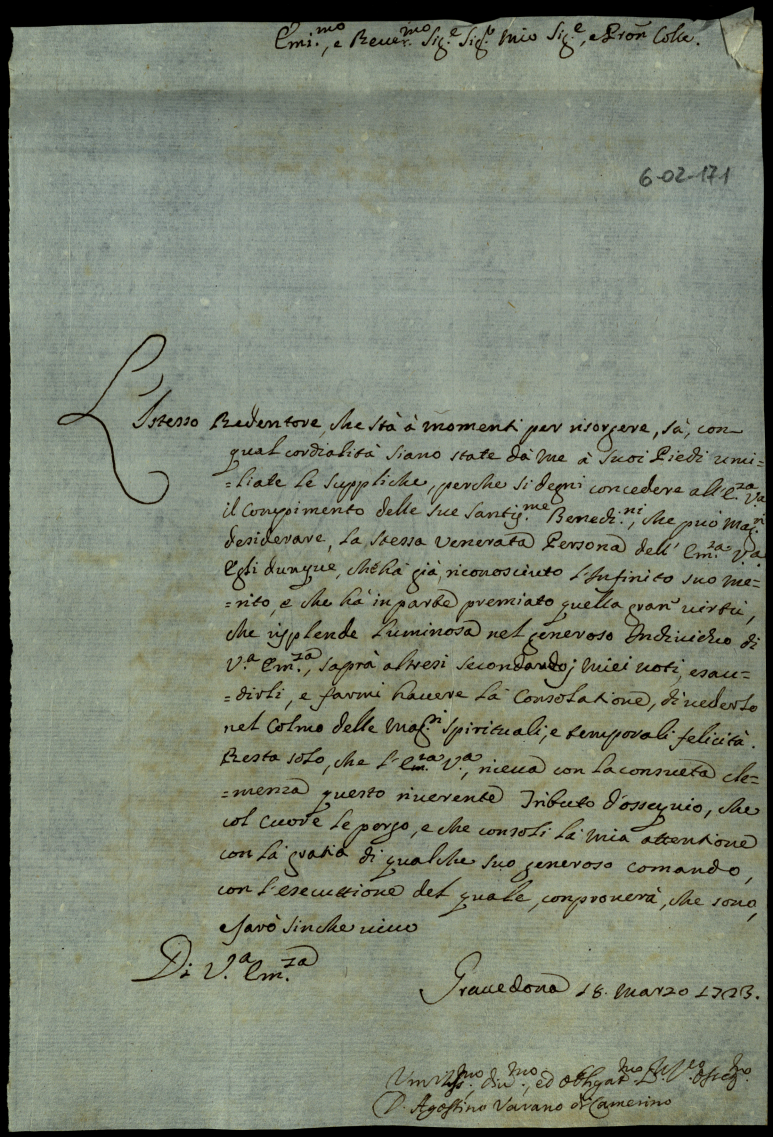 Em.mo, e Reuer.mo Sig.e Sig.e Mio Sig.e, e Pron Colᵉ.
6-02-171
L'Istesso Redentore, che stà à momenti per risorgere, sà, con
qual cordialità siano state dà me à suoi Piedi umi=
=liate le suppliche, perche si degni concedere all'E.za V.a
il Compimento delle sue Santis.me Benedi.ni, che può mag.ri
desiderare, la stessa venerata Persona dell' Em.za V.a
Egli dunque, che hà già, riconosciuto l'Infinito suo me=
=rito, e che hà in parte premiato quella gran virtù,
che risplende luminosa nel generoso Individuo di
V.a Em.za, saprà altresi secondando j miei uoti, esau=
=dirli, e farmi hauere la Consolatione, di uederlo
nel Colmo delle mag.ri spirituali, e temporali felicità.
Resta solo, che l'Em.za V.a, riceua con la consueta cle=
=menza questo riuerente Tributo d'ossequio, che
col cuore le porgo, e che consoli la mia attentione
con la gratia di qualche suo generoso comando,
con l'esecuttione del quale, conprouerà, che sono,
e sarò sinche uiuo
Di V.a Em.za
Grauedona 18. Marzo 1723.
Vmiliss.mo diu.mo, ed obligat.mo
D. Agostino Varano di Camerino